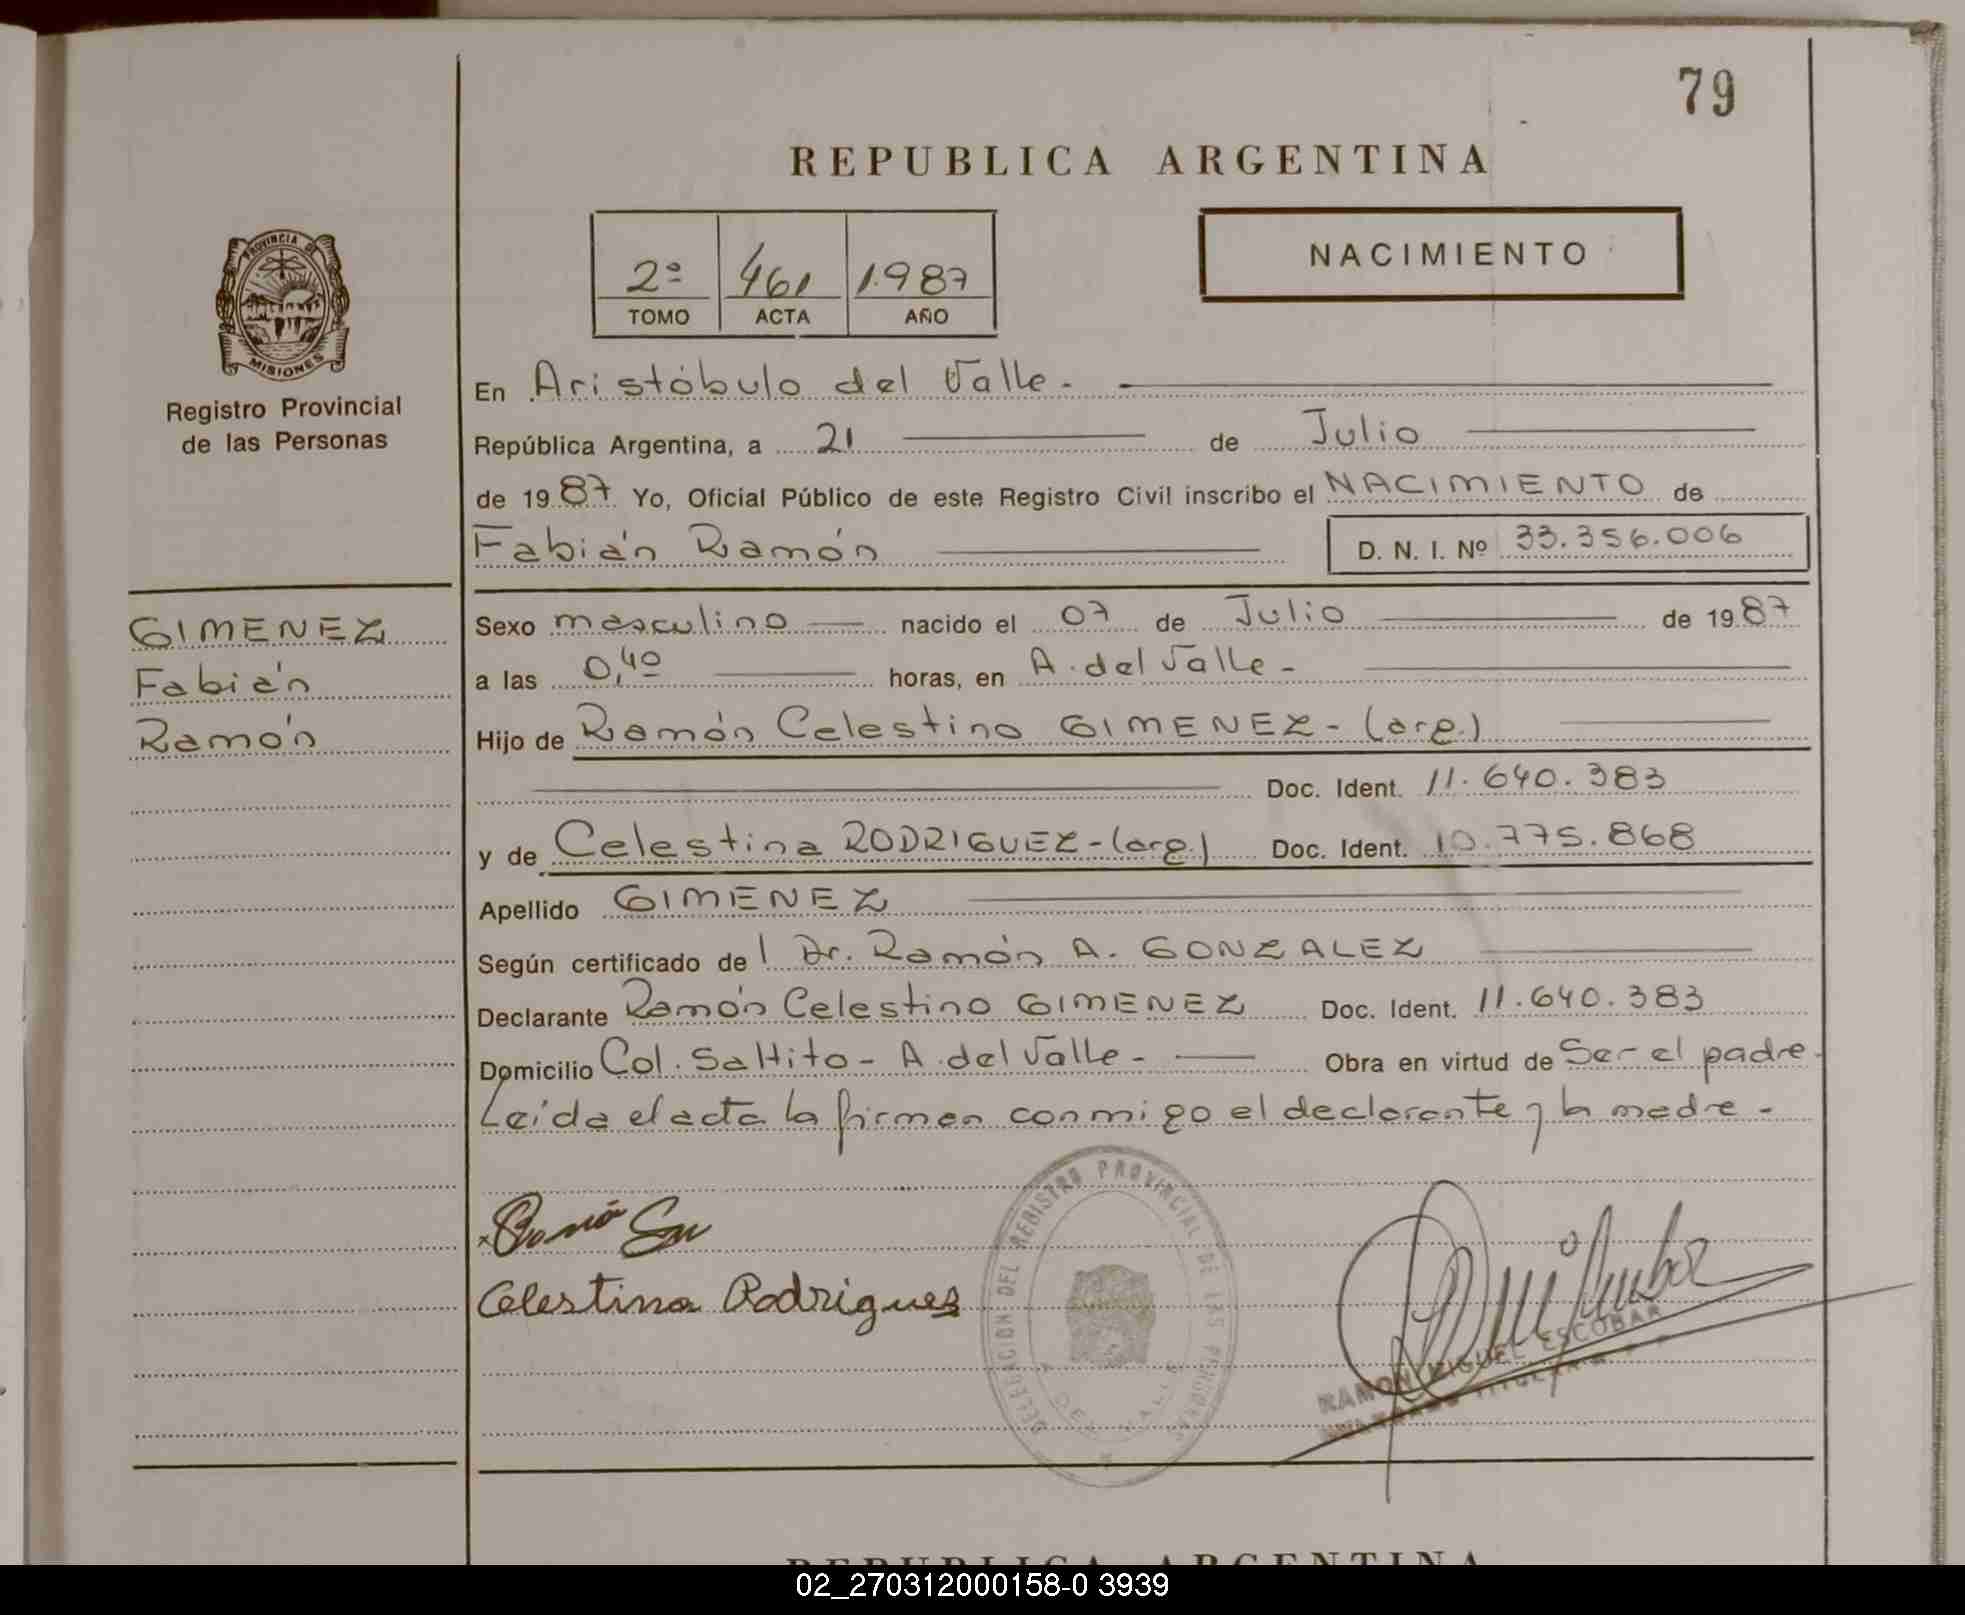 79
REPUBLICA ARGENTINA
2º 461 1.987
TOMO ACTA AÑO
NACIMIENTO
PROVINCIA DE
MISIONES
Registro Provincial
de las Personas
En Aristóbulo del Valle.
República Argentina, a 21 de Julio
de 1987 Yo, Oficial Público de este Registro Civil inscribo el NACIMIENTO de
Fabián Ramón D. N. I. Nº 33.356.006
GIMENEZ
Fabián
Ramón
Sexo masculino nacido el 07 de Julio de 1987
a las 0,40 horas, en A. del Valle -
Hijo de Ramón Celestino GIMENEZ - (arg.)
Doc. Ident. 11.640.383
y de Celestina RODRIGUEZ - (arg.) Doc. Ident. 10.775.868
Apellido GIMENEZ
Según certificado del Dr. Ramón A. GONZALEZ
Declarante Ramón Celestino GIMENEZ Doc. Ident. 11.640.383
Domicilio Col. Saltito - A. del Valle - Obra en virtud de Ser el padre.
Leída el acta la firman conmigo el declarante y la madre -
Celestina Rodrigues
DELEGACION DEL REGISTRO PROVINCIAL DE LAS PERSONAS
A. DEL VALLE
RAMON MIGUEL ESCOBAR
REPUBLICA ARGENTINA
02_270312000158-0 3939